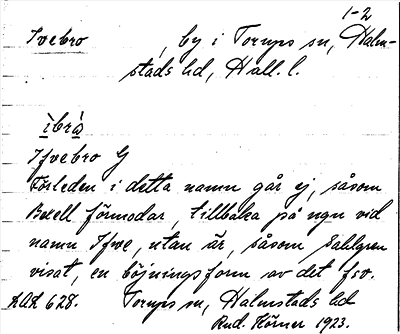 1-2
Ivebro, by i Torups sn, Halm-
stads hd, Hall. l.
ìbrà
Ifvebro G
Förleden i detta namn går ej, såsom
Bexell förmodar, tillbaka på ngn vid
namn Ifve, utan är, såsom Sahlgren
visat, en böjningsform av det fsv.
KAK 628. Torups sn, Halmstads hd
Rud. Hörner 1923.